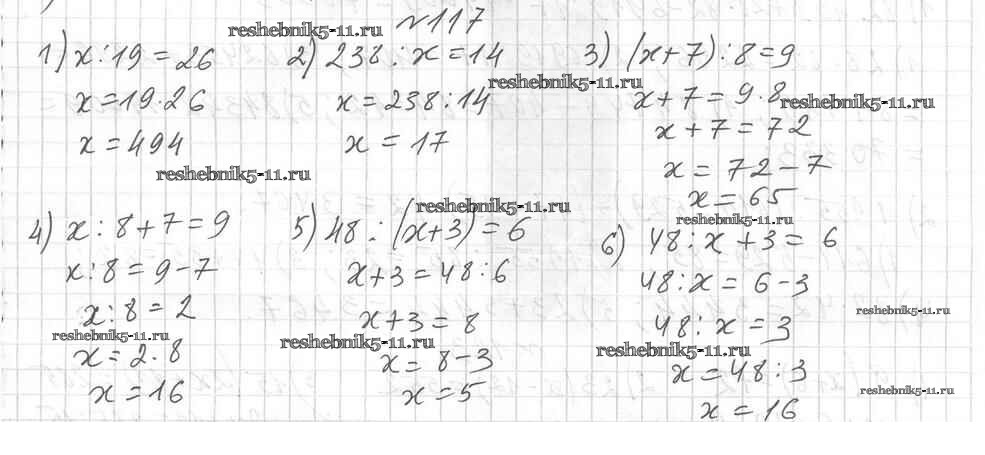 №117
reshebnik5-11.ru
1) x:19=26
x=19·26
x=494
reshebnik5-11.ru
2) 238:x=14
x=238:14
x=17
reshebnik5-11.ru
3) (x+7):8=9
x+7=9·8
reshebnik5-11.ru
x+7=72
x=72-7
x=65
reshebnik5-11.ru
4) x:8+7=9
x:8=9-7
x:8=2
reshebnik5-11.ru
x=2·8
x=16
reshebnik5-11.ru
5) 48:(x+3)=6
x+3=48:6
x+3=8
reshebnik5-11.ru
x=8-3
x=5
6) 48:x+3=6
48:x=6-3
reshebnik5-11.ru
48:x=3
reshebnik5-11.ru
x=48:3
reshebnik5-11.ru
x=16